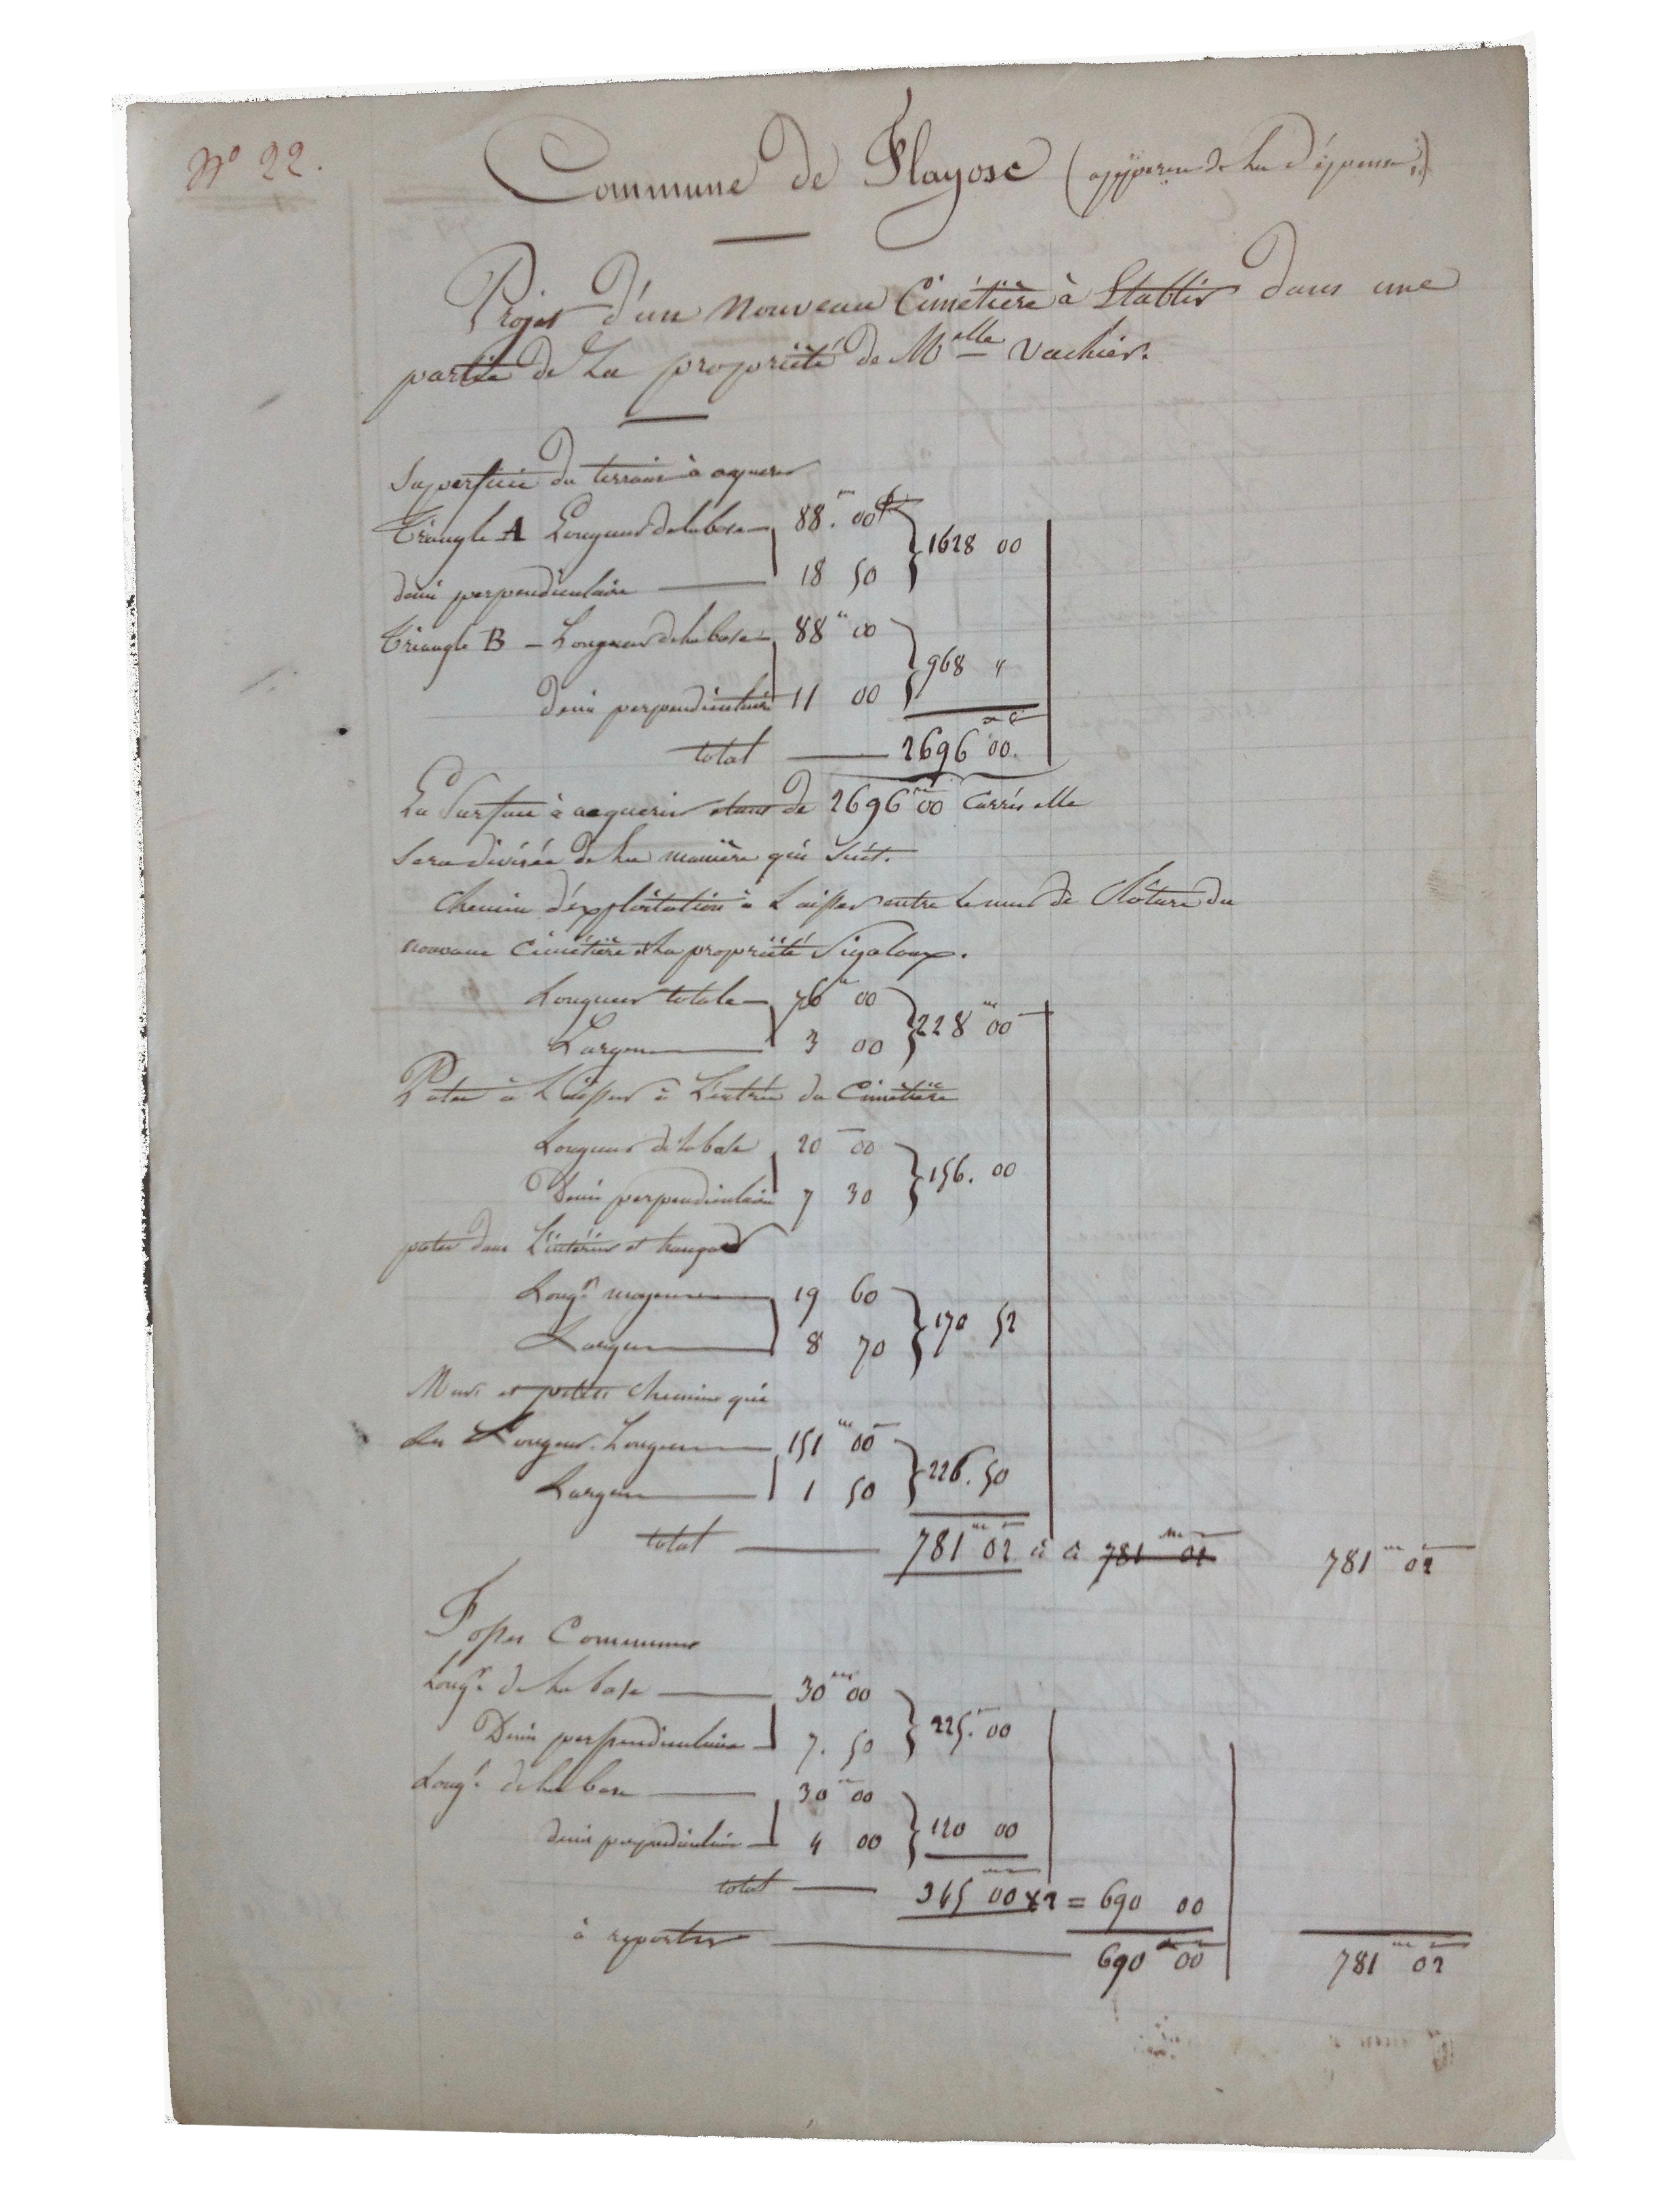 N° 22.
Commune de Flayosc (apperçu de la dépense)
Projet d'un nouveau Cimétière à Etablir dans une
partie de La propriété de Melle Vachier.
Superficie du terrain à aquerir
Triangle A Longueur de la base 88m. 00c
1628 00
demi perpendiculaire 18 50
Triangle B - Longueur de la base 88m 00
968 "
Demi perpendiculaire 11 00
total 2696 00.
La Surface à acquerir etant de 2696m 00 Carrés elle
Sera divisée de la manière qui Suit.
Chemin d'exploitation à Laisser entre le mur de Clôture du
nouveau Cimétière et la propriété Sigaloux.
Longueur totale 76m 00
228m 00
Largeur 3 00
à Laisser à L'entrée du Cimétière
Longueur de la base 20 00
156. 00
Demi perpendiculaire 7 30
dans L'intérieur et hangard
Longr moyenne 19 60
170 52
Largeur 8 70
Murs et petits chemins qui
Les Longeur. Longueur 151m 00
226. 50
Largeur 1 50
total 781m 02 à à 781m 02 781m 02
Fosses Communes
Longr de La base 30m 00
225. 00
Demi perpendiculaire 7. 50
Longr de La base 30m 00
120 00
demi perpendiculaire 4 00
total 345 00 x2 = 690 00
à reporter 690m 00 781m 02